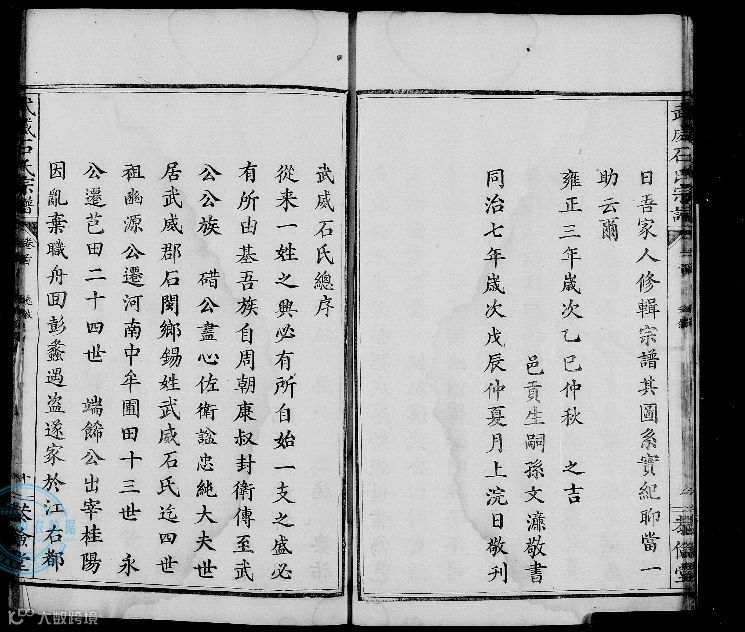 武威石氏宗譜
日吾家人修輯宗譜其圖系實紀聊當一
助云爾
雍正三年歲次乙巳仲秋 之吉
邑貢生嗣孫文濂敬書
同治七年歲次戊辰仲夏月上浣日敬刊
武威石氏總序
從来一姓之興必有所自始一支之盛必
有所由基吾族自周朝康叔封衛傳至武
公公族 碏公盡心佐衛諡忠純大夫世
居武威郡石閔鄉錫姓武威石氏迄四世
祖幽源公遷河南中牟圃田十三世 永
公遷芑田二十四世 端餙公出宰桂陽
因亂棄職舟囬彭蠡遇盗遂家於江右都
武威石氏宗譜
卷首
人数跨境